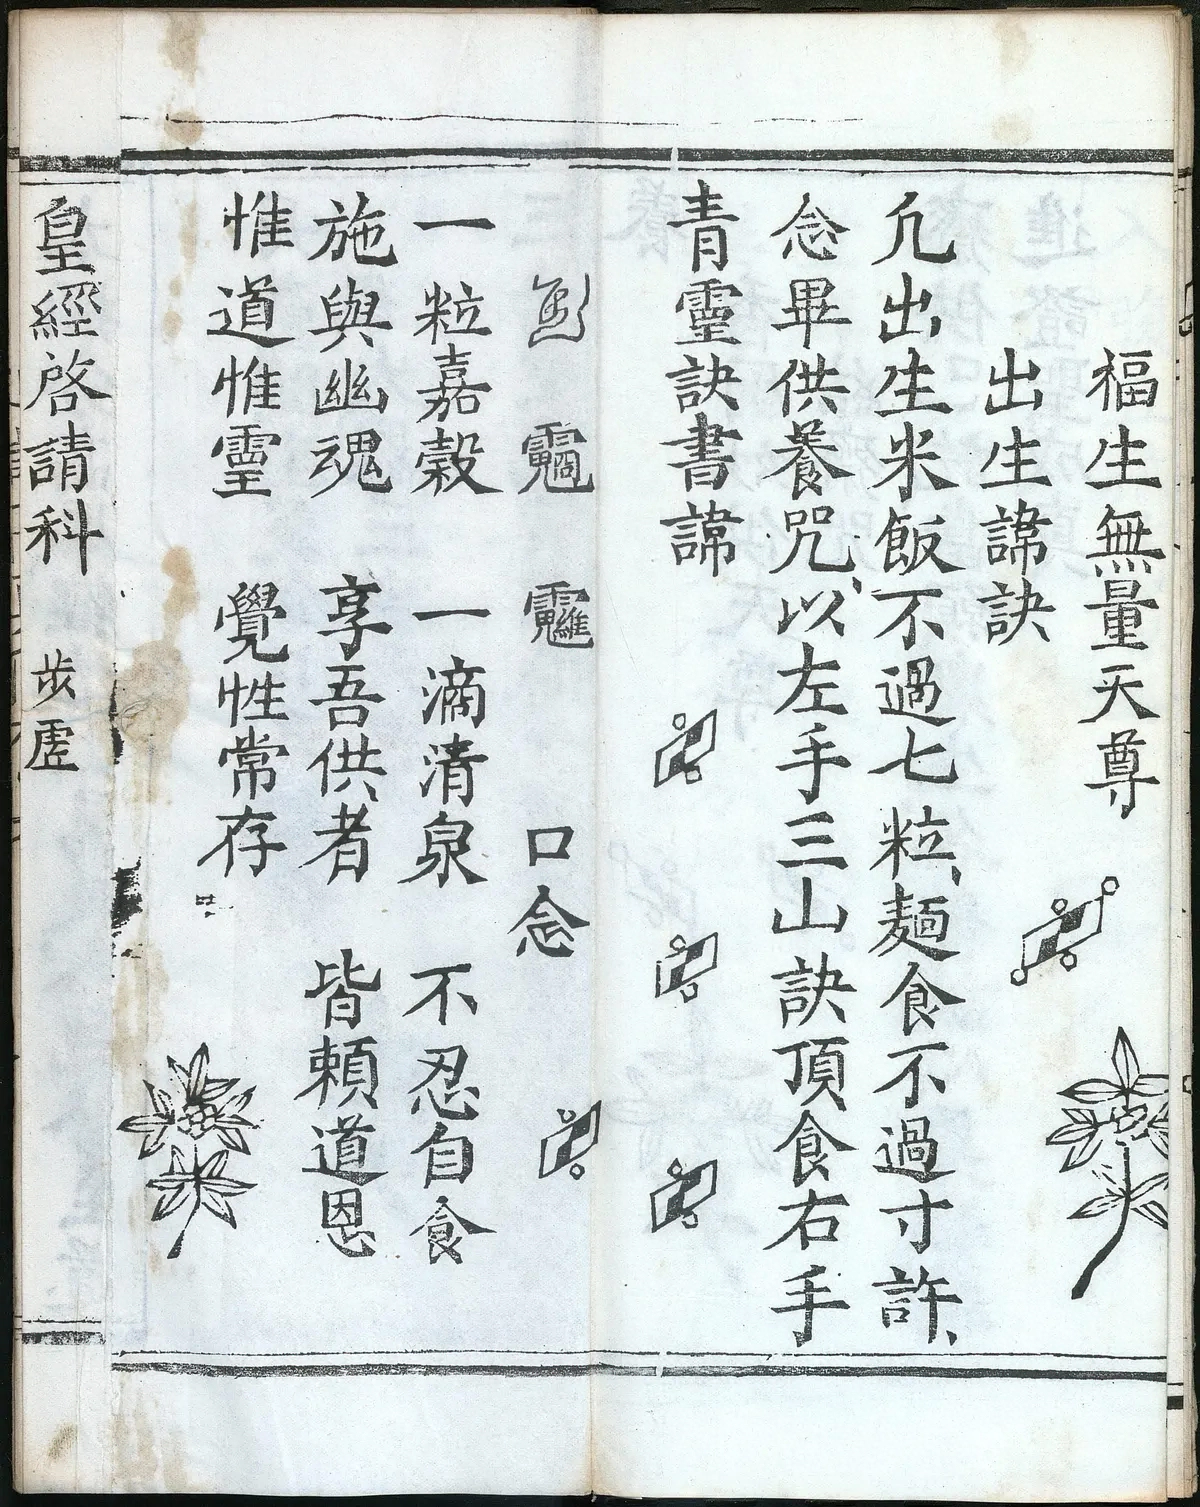 福生無量天尊
出生諱訣
凢出生米飯不過七粒、麺食不過寸許、
念畢供養咒、以左手三山訣頂食右手
青靈訣書諱
口念
一粒嘉穀 一滴清泉 不忍自食
施與幽魂 享吾供者 皆頼道恩
惟道惟靈 覺性常存
皇經啓請科 步虛